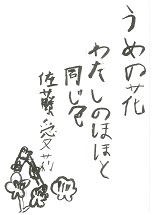 うめの花
わたしのほほと
同じ色
佐藤愛文莉